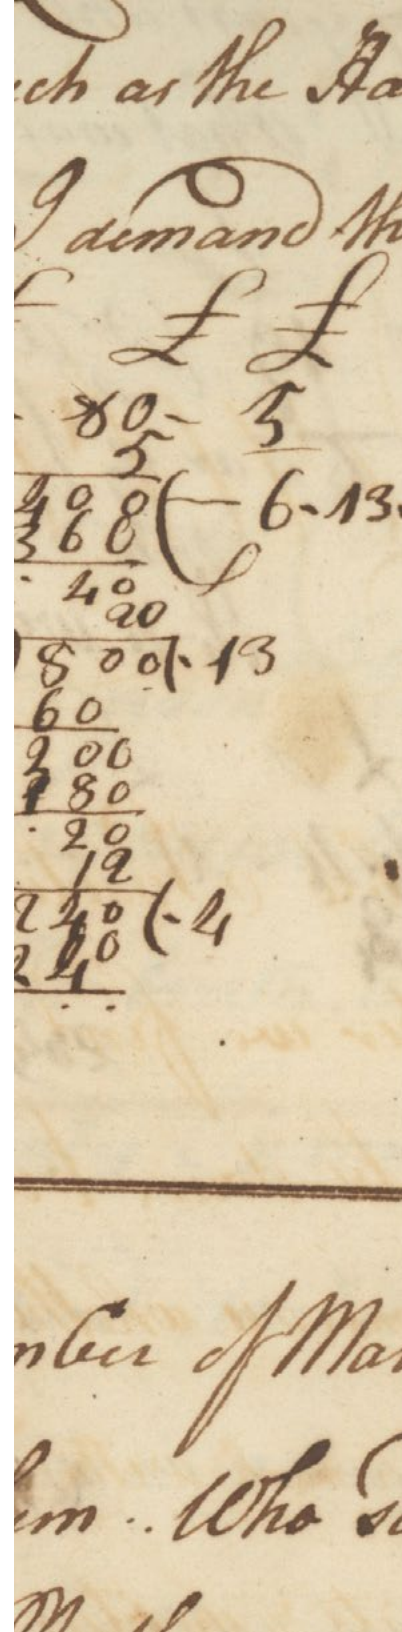 ch as the Ha
I demand th
£ £
80- 5
5
400 (- 6-13-
360
40
20
800(-13
60
200
180
20
12
240 (-4
240
mber of Mar
em.. Who s